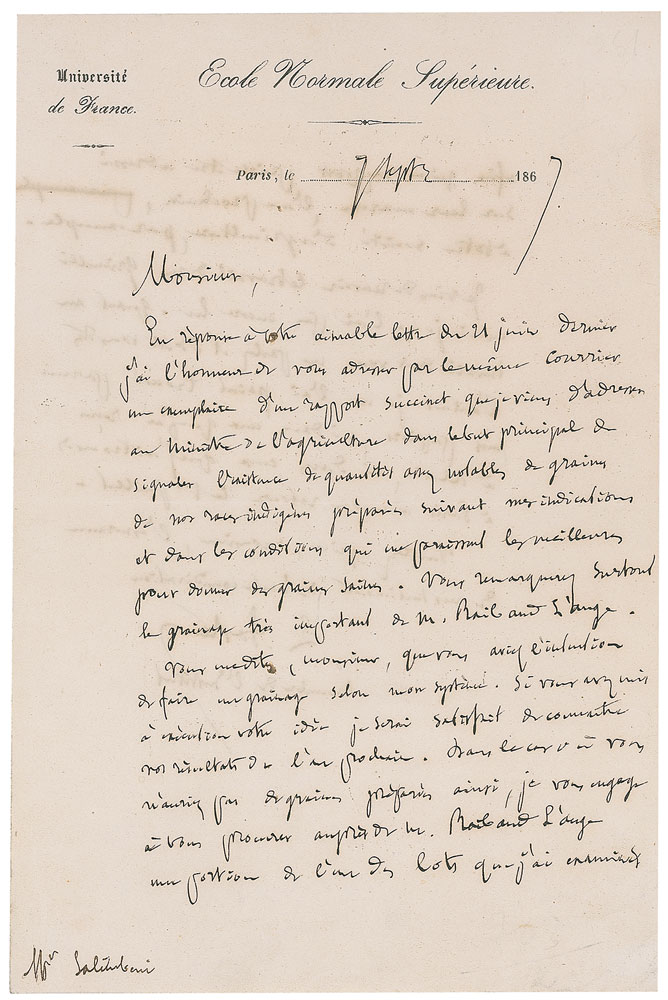 Université
de France.
Ecole Normale Supérieure.
Paris, le 7 septbre 1867
Monsieur,
En réponse à votre aimable lettre du 21 juin dernier
j'ai l'honneur de vous adresser par le même courrier
un exemplaire d'un rapport succinct que je viens d'adresser
au Ministre de l'agriculture dans le but principal de
signaler l'existence de quantités assez notables de graines
de nos races indigènes préparées suivant mes indications
et dans les conditions qui me paraissent les meilleures
pour donner des graines saines. Vous remarquerez surtout
le grainage très important de M. Raibaud L'ange.
Vous me dites, monsieur, que vous aviez l'intention
de faire un grainage selon mon système. Si vous avez mis
à exécution votre idée je serai satisfait de connaître
vos résultats de l'an prochain. Dans le cas où vous
n'auriez pas de graines préparées ainsi, je vous engage
à vous procurer auprès de M. Raibaud L'ange
une portion de l'un des lots que j'ai examinés
Salimbeni